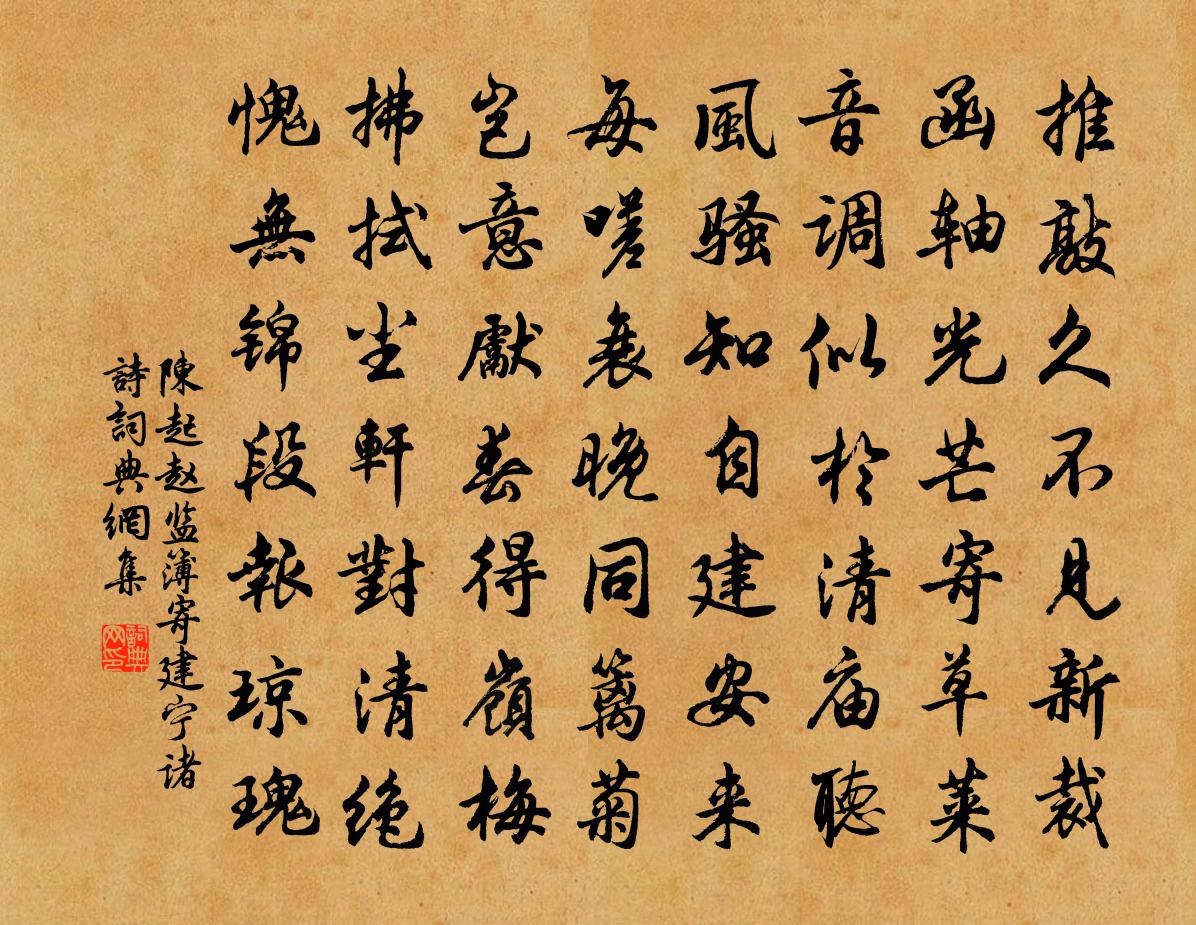 推敲久不見新裁
函轴光芒寄草莱
音调似於清庙聴
風骚知自建安来
每嗟衰晚同籬菊
岂意獻春得嶺梅
拂拭尘軒對清绝
愧無锦段報琼瑰
陳起赵监簿寄建宁诸
詩詞典網集
詞典网印